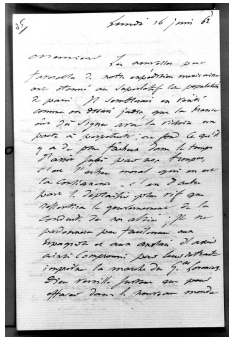 35
Lundi 16 juin 62
Monsieur Les nouvelles peu
favorables de notre expédition mexicaine
ont étonné au superlatif la population
de paris. Il semblerait en vérité
comme on disait jadis que la France
ait signé avec la victoire un
pacte à perpétuité. au fond ce qu'il
y a de plus fâcheux dans le temps
d'arrêt subi par nos troupes,
c'est l'échec moral qui en est
la conséquence. c'en d'autre
part le déplaisir plus vif que
le gouvernement de la
conduite de nos alliés. Il ne
pardonnera pas facilement aux
espagnols et aux anglais d'avoir
ainsi compromis par leur retraite
la marche du G. Lorencez.
Dieu veuille surtout que pour
dans le nouveau monde